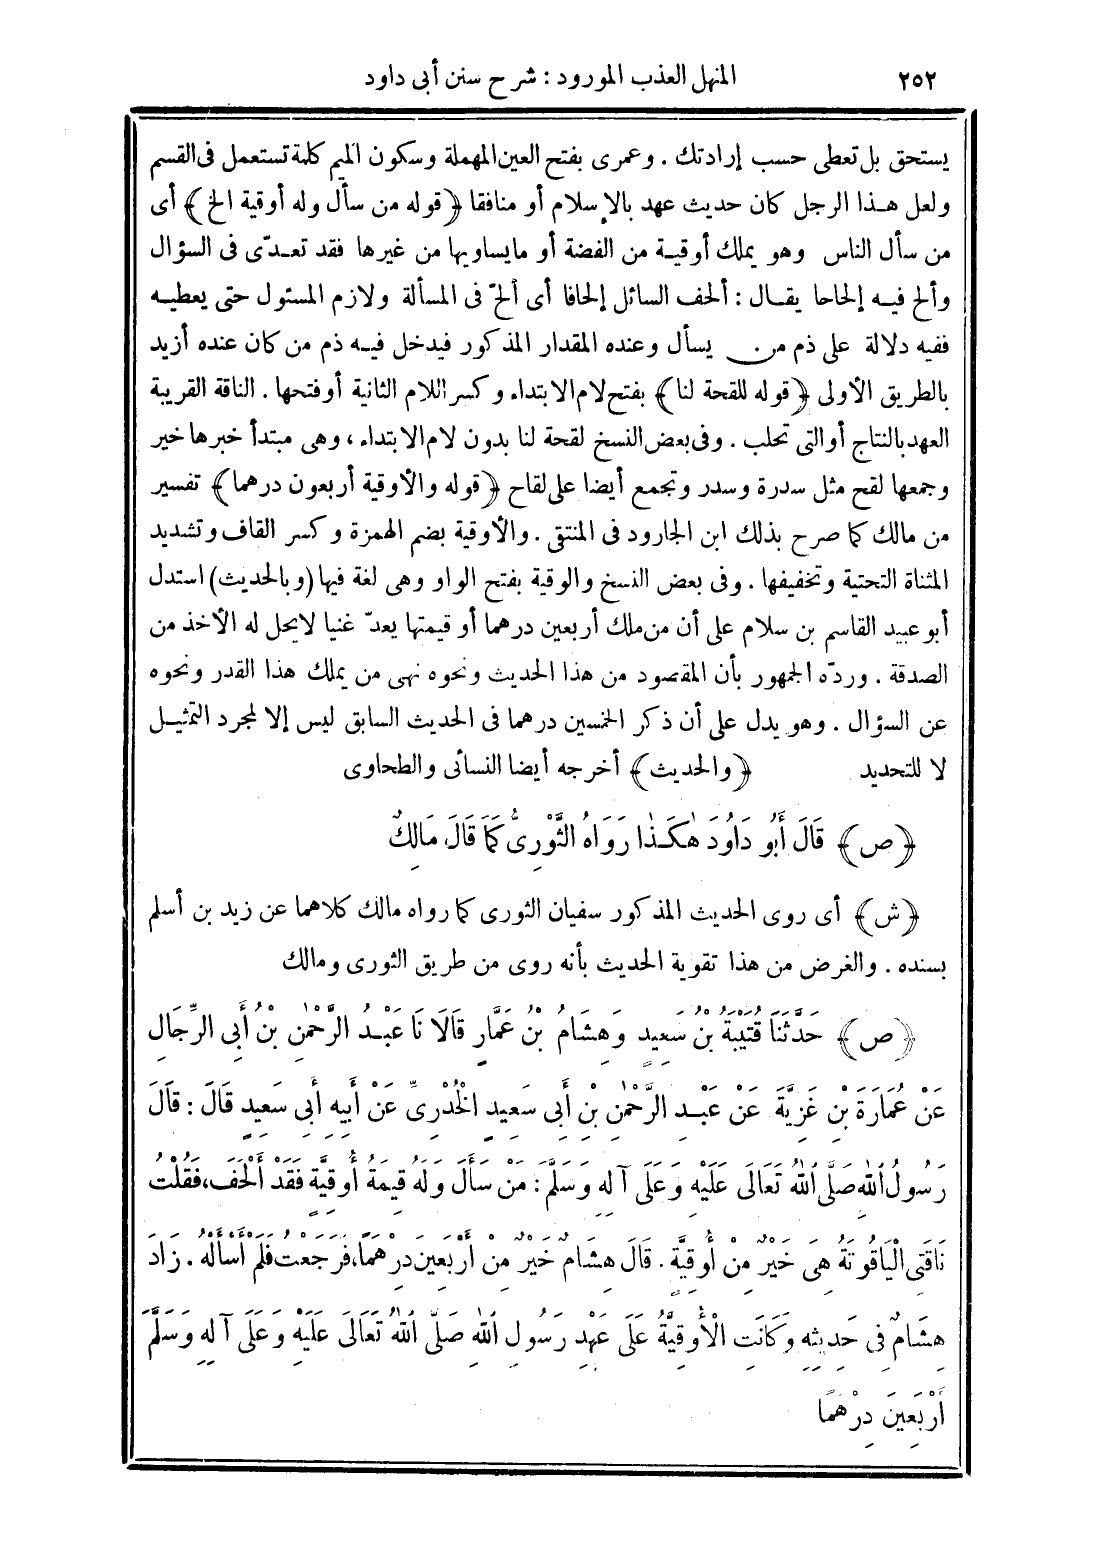 ٢٥٢
المنهل العذب المورود : شرح سنن أبى داود
يستحق بل تعطى حسب إرادتك . وعمرى بفتح العين المهملة وسكون الميم كلمة تستعمل فى القسم
ولعل هذا الرجل كان حديث عهد بالإسلام أو منافقا ﴿قوله من سأل وله أوقية الخ﴾ أى
من سأل الناس وهو يملك أوقية من الفضة أو مايساويها من غيرها فقد تعدّى فى السؤال
وألح فيه إلحاحا يقال : ألحف السائل إلحافا أى ألحّ فى المسألة ولازم المسئول حتى يعطيه
ففيه دلالة على ذم من يسأل وعنده المقدار المذكور فيدخل فيه ذم من كان عنده أزيد
بالطريق الأولى ﴿قوله للقحة لنا﴾ بفتح لام الابتداء وكسر اللام الثانية أوفتحها . الناقة القريبة
العهد بالنتاج أوالتى تحلب . وفى بعض النسخ لقحة لنا بدون لام الابتداء ، وهى مبتدأ خبرها خير
وجمعها لقح مثل سدرة وسدر وتجمع أيضا على لقاح ﴿قوله والأوقية أربعون درهما﴾ تفسير
من مالك كما صرح بذلك ابن الجارود فى المنتقى . والأوقية بضم الهمزة وكسر القاف وتشديد
المثناة التحتية وتخفيفها . وفى بعض النسخ والوقية بفتح الواو وهى لغة فيها (وبالحديث) استدل
أبو عبيد القاسم بن سلام على أن من ملك أربعين درهما أو قيمتها يعدّ غنيا لايحل له الأخذ من
الصدقة . وردّه الجمهور بأن المقصود من هذا الحديث ونحوه نهى من يملك هذا القدر ونحوه
عن السؤال . وهو يدل على أن ذكر الخمسين درهما فى الحديث السابق ليس إلا لمجرد التمثيل
لا للتحديد ﴿والحديث﴾ أخرجه أيضا النسائى والطحاوى
﴿ص﴾ قَالَ أَبُو دَاوُدَ هٰكَذَا رَوَاهُ الثَّوْرِىُّ كَمَا قَالَ مَالِكٌ
﴿ش﴾ أى روى الحديث المذكور سفيان الثورى كما رواه مالك كلاهما عن زيد بن أسلم
بسنده . والغرض من هذا تقوية الحديث بأنه روى من طريق الثورى ومالك
﴿ص﴾ حَدَّثَنَا قُتَيْبَةُ بْنُ سَعِيدٍ وَهِشَامُ بْنُ عَمَّارٍ قَالَا نَا عَبْدُ الرَّحْمٰنِ بْنُ أَبِى الرِّجَالِ
عَنْ عُمَارَةَ بْنِ غَزِيَّةَ عَنْ عَبْدِ الرَّحْمٰنِ بْنِ أَبِى سَعِيدٍ الْخُدْرِىِّ عَنْ أَبِيهِ أَبِى سَعِيدٍ قَالَ : قَالَ
رَسُولُ اللهِ صَلَّى اللهُ تَعَالَى عَلَيْهِ وَعَلَى آلِهِ وَسَلَّمَ : مَنْ سَأَلَ وَلَهُ قِيمَةُ أُوقِيَّةٍ فَقَدْ أَلْحَفَ ، فَقُلْتُ
نَاقَتِى الْيَاقُوتَةُ هِىَ خَيْرٌ مِنْ أُوقِيَّةٍ . قَالَ هِشَامٌ خَيْرٌ مِنْ أَرْبَعِينَ دِرْهَمًا ، فَرَجَعْتُ فَلَمْ أَسْأَلْهُ . زَادَ
هِشَامٌ فِى حَدِيثِهِ وَكَانَتِ الْأُوقِيَّةُ عَلَى عَهْدِ رَسُولِ اللهِ صَلَّى اللهُ تَعَالَى عَلَيْهِ وَعَلَى آلِهِ وَسَلَّمَ
أَرْبَعِينَ دِرْهَمًا